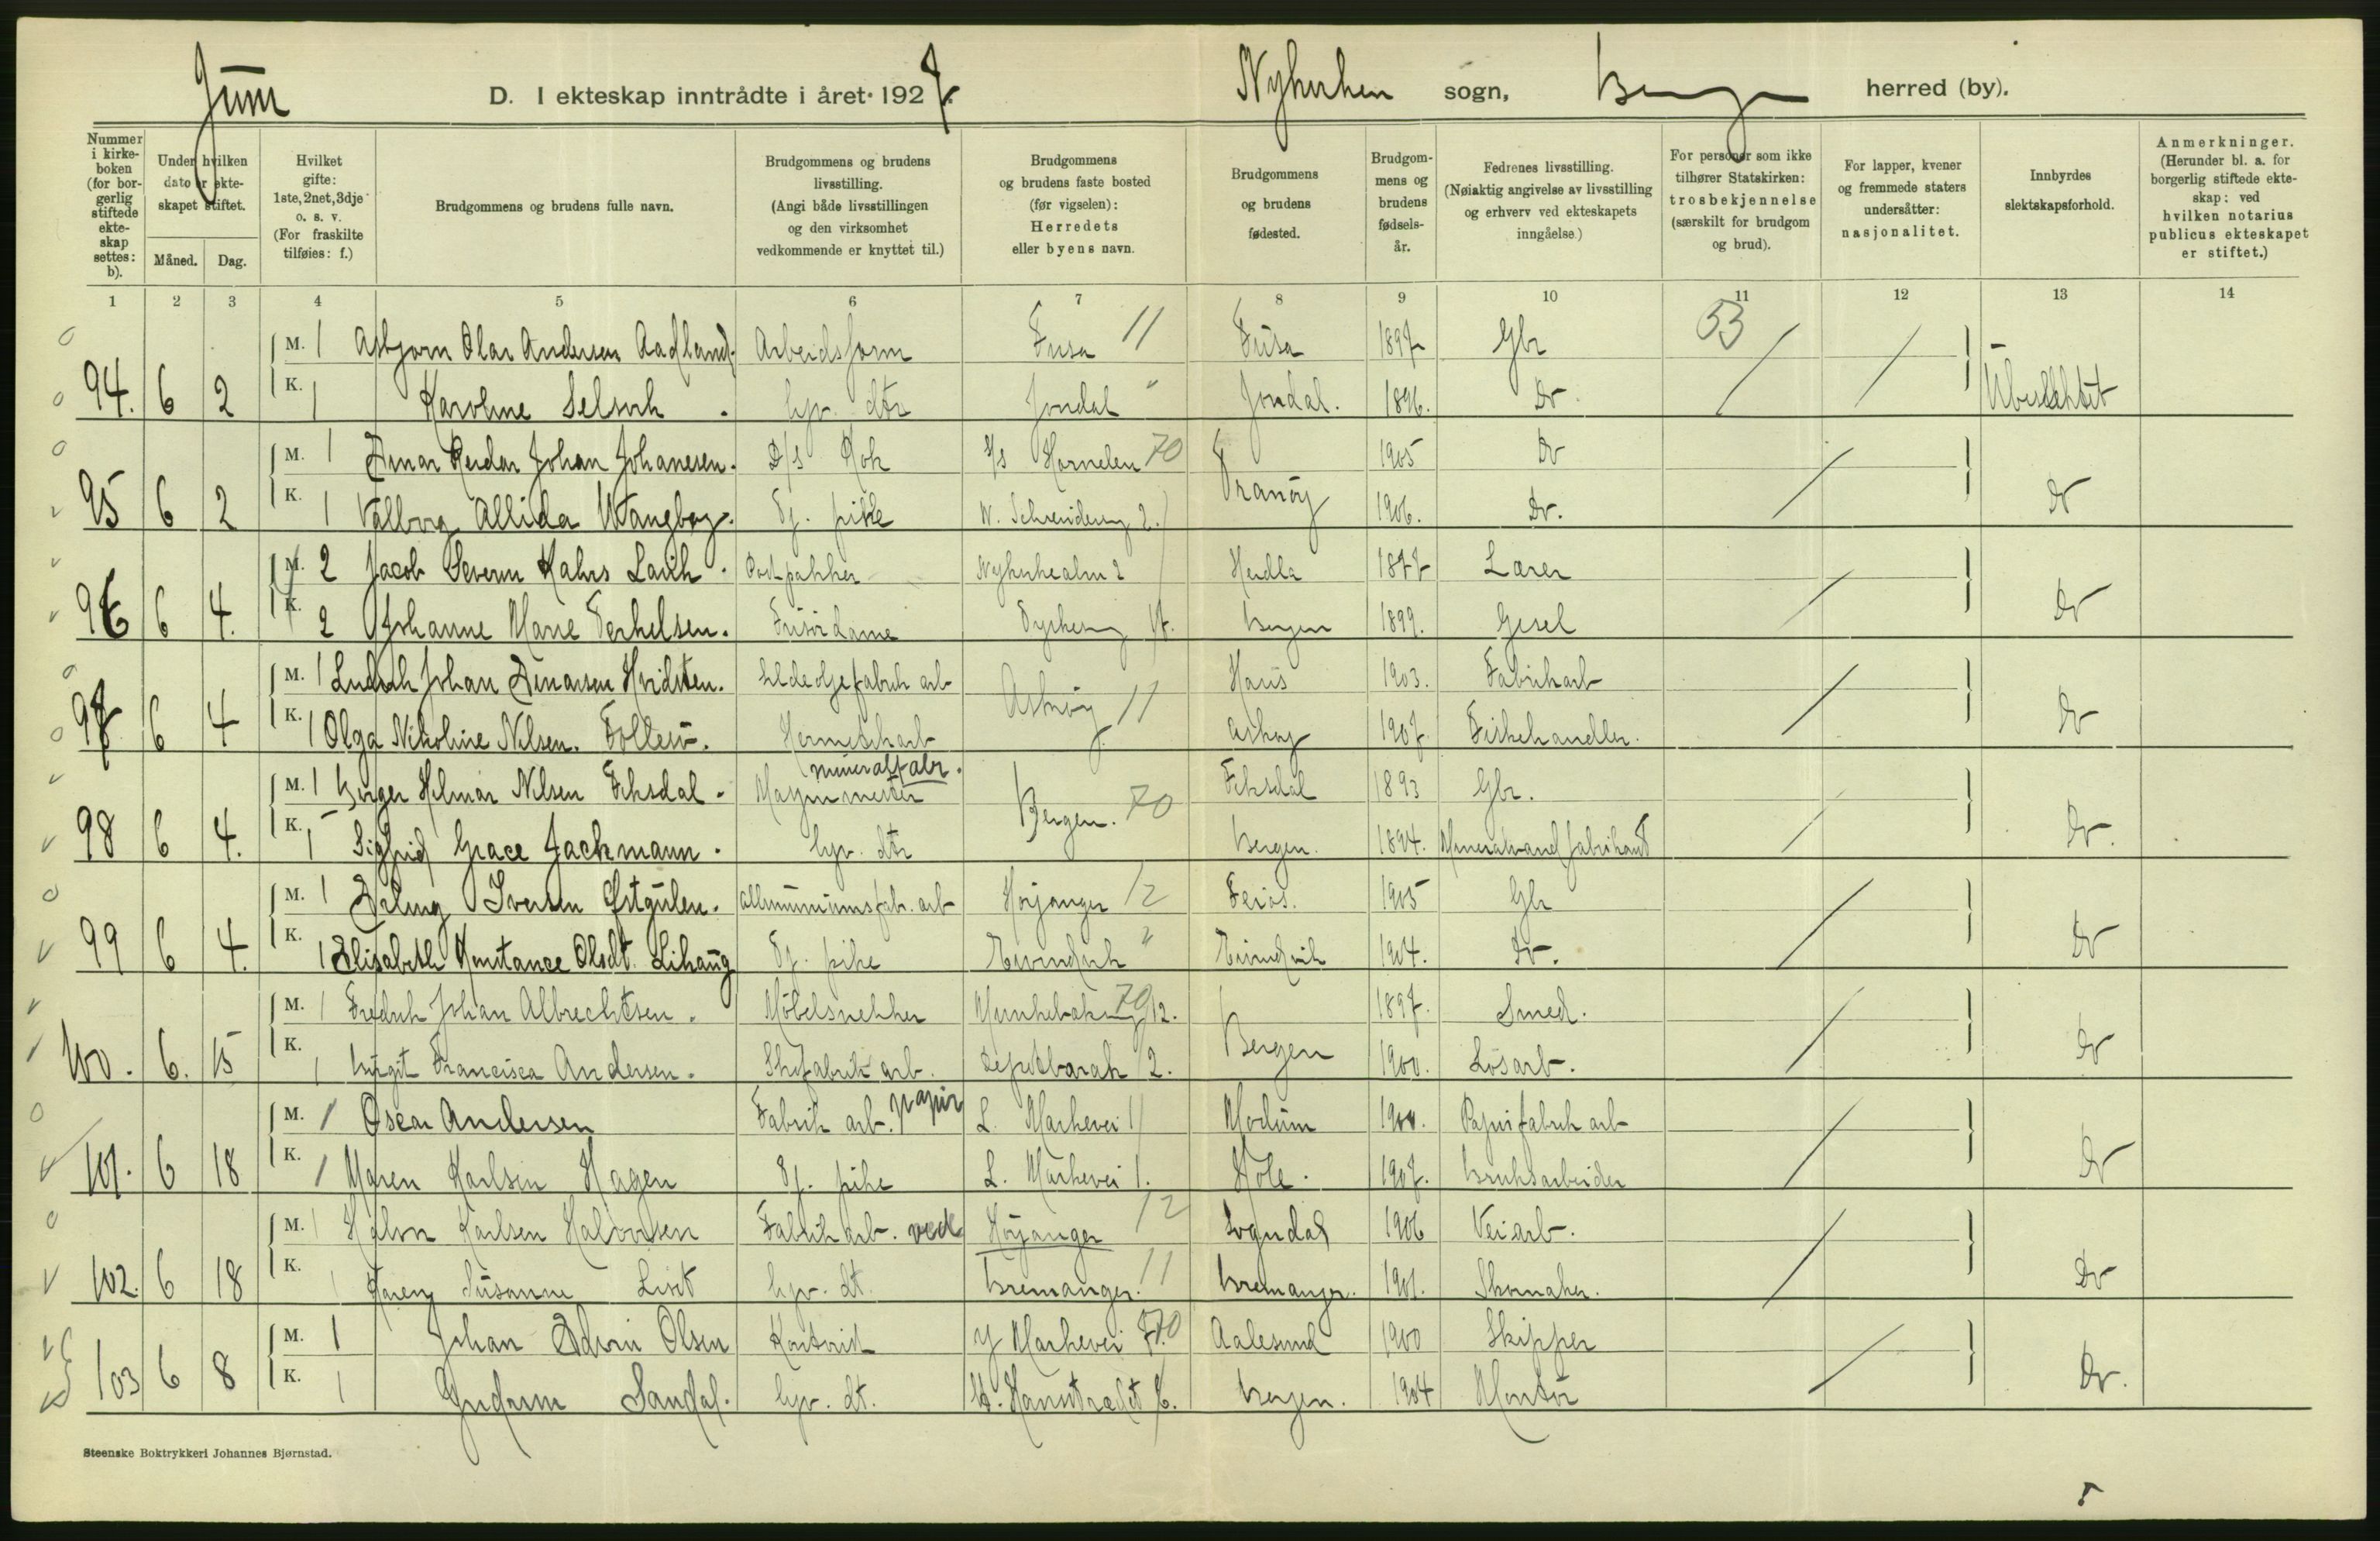 Juni D. I ekteskap inntrådte i året 1927. Nykirken sogn, Bergen herred (by).
Nummer i kirkeboken (for borgerlig stiftede ekteskap settes: b).
Under hvilken dato er ekteskapet stiftet.
Måned. Dag.
Hvilket gifte: 1ste, 2net, 3dje o. s. v. (For fraskilte tilføies: f.)
Brudgommens og brudens fulle navn.
Brudgommens og brudens livsstilling. (Angi både livsstillingen og den virksomhet vedkommende er knyttet til.)
Brudgommens og brudens faste bosted (før vigselen): Herredets eller byens navn.
Brudgommens og brudens fødested.
Brudgommens og brudens fødselsår.
Fedrenes livsstilling. (Nøiaktig angivelse av livsstilling og erhverv ved ekteskapets inngåelse.)
For personer som ikke tilhører Statskirken: trosbekjennelse (særskilt for brudgom og brud).
For lapper, kvener og fremmede staters undersåtter: nasjonalitet.
Innbyrdes slektskapsforhold.
Anmerkninger. (Herunder bl. a. for borgerlig stiftede ekteskap: ved hvilken notarius publicus ekteskapet er stiftet.)
1 2 3 4 5 6 7 8 9 10 11 12 13 14
M. 1 Asbjørn Olav Andersen Aadland. Arbeidsform Fusa 11 Fusa 1897 Gbr 53
94. 6 2 K. 1 Karoline Selsvik. hjv. dtr Jondal " Jondal. 1896. Do Ubeslektet
M. 1 Einar Reidar Johan Johanesen. D/s Kok D/s Hornelen 70 1905 Do
95 6 2 K. 1 Valborg Allida Wangberg. Tj. pike W. Schreidersg 2. Tranøy 1906. Do. Do
M. 2 Jacob Severin Kahrs Lavik. Postpakker Nykirkealm 2 Herdla 1877 Lærer
96 6 4. K. 2 Johanne Marie Terkelsen. Frisørdame Bergen 1899. Gjesel Do
M. 1 Ludvik Johan Einarsen Hvidsten. Sildeoljefabrik arb Haus 1903. Fabrikarb
97 6 4 K. 1 Olga Nikoline Nilsen Follesø. Hermetikarb Askøy 11 Askøy 1907. Fiskehandler. Do
M. 1 Birger Hilmar Nilsen Fiksdal. Maskinmester mineralfabr. Fiksdal 1893 Gbr.
98 6 4. K. 1 Sigfrid Grace Jackmann. hjv. dtr Bergen. 70 Bergen. 1894. Mineralvandfabrikant Do.
M. 1 Erling Iversen Østgulen. alluminiumsfabr. arb Høyanger 12 Feios. 1905 Gbr
99 6 4. K. 1 Elisabeth Konstance Olsdt. Lihaug Tj. pike Eivindvik " Eivindvik 1904. Do. Do
M. 1 Fredrik Johan Albrechtsen. Møbelsnekker Munkebakg 12. 70 1897. Smed.
100. 6. 15 K. 1 Birgit Francisca Andersen. Skofabrik arb. 2. Bergen 1900. Løsarb. Do
M. 1 Oscar Andersen Fabrik arb. papir L. Markevei 1 Modum 1900. Papirfabrik arb
101. 6 18 K. 1 Maren Karlsen Hagen Tj. pike L. Markevei 1. Hole. 1907. Bruksarbeider Do
M. 1 Halvor Karlsen Halvorsen Fabrikarb. ved Høyanger 12 Sogndal 1906 Veiarb.
102. 6 18 K. 1 Karen Susanne hjv. dt. Bremanger. 11 Bremanger. 1901. Skomaker. Do
M. 1 Johan Edvin Olsen Kontorist Markevei 70 Aalesund 1900 Skipper
103 6 8 K. 1 Gudrun Sandal. hjv. dt. Bergen. 1904 Montør Do.
Steenske Boktrykkeri Johannes Bjørnstad.